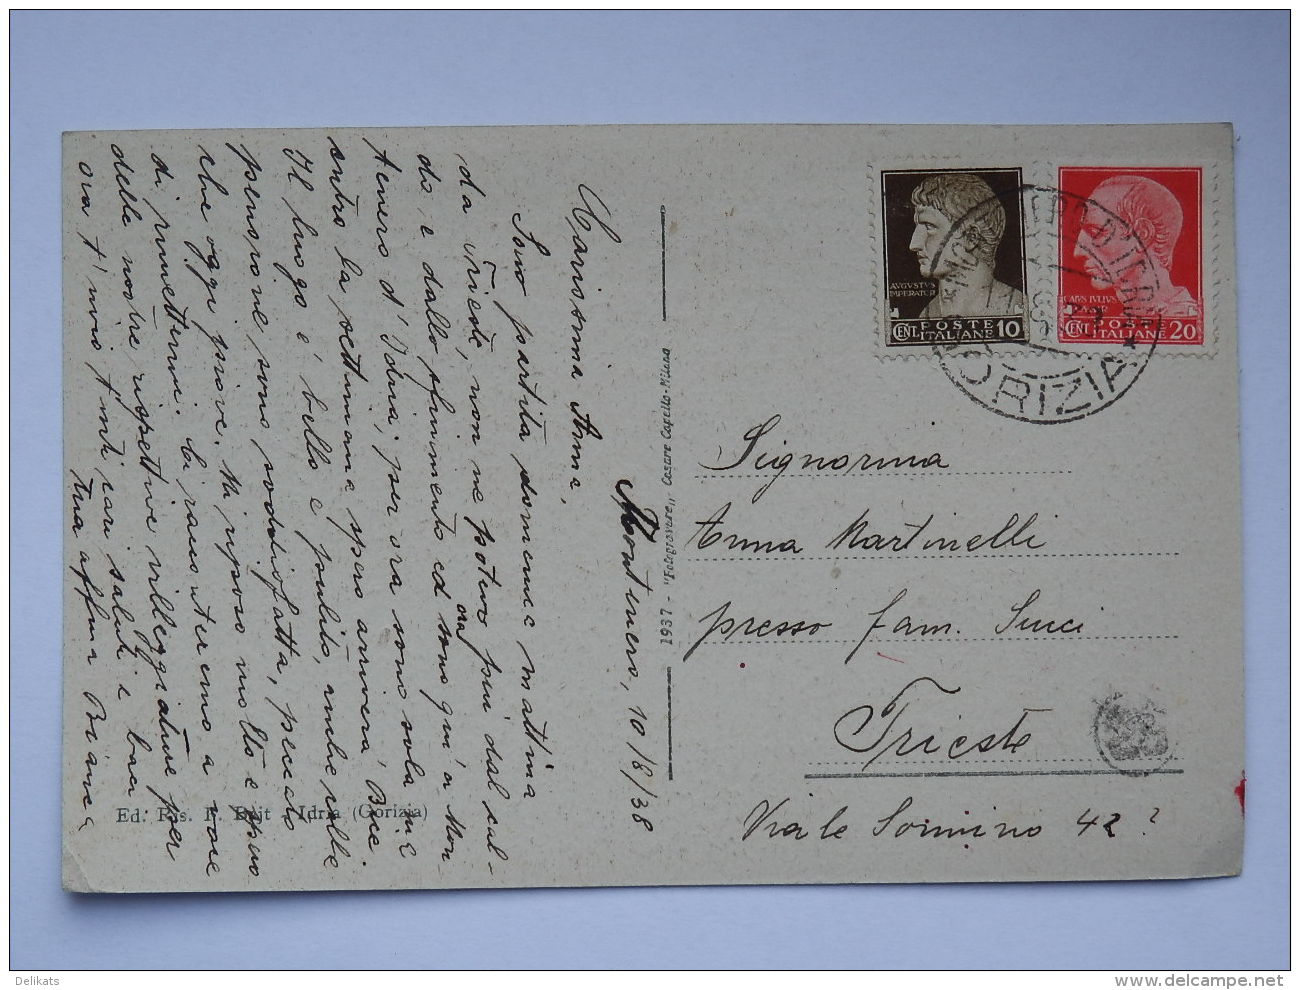 Montenero, 10/8/38
Carissima Anna,
Sono partita domenica mattina
da Trieste, non ne potevo più dal cal-
do e dallo sfinimento ed ora sono qui a Mon-
tenero d'Idria; per ora sono sola ma
entro la settimana spero arriverà Bice.
Il luogo è bello e pulito, anche della
pensione sono soddisfatta, peccato
che oggi piove. Mi riposo molto e spero
di rimettermi. Ci racconteremo a voce
delle nostre rispettive villeggiature per
ora t'invio tanti cari saluti e baci
tua affma Bianca
Ed. Ris. F. Bajt - Idria (Gorizia)
1937 - "Fotogravure" Cesare Capello - Milano
AVGVSTVS
IMPERATOR
CENT. POSTE ITALIANE 10
CAIVS IVLIVS
CENT. POSTE ITALIANE 20
GORIZIA
Signorina
Anna Martinelli
presso fam. Succi
Trieste
Viale Sonnino 42?
Delikats
www.delcampe.net